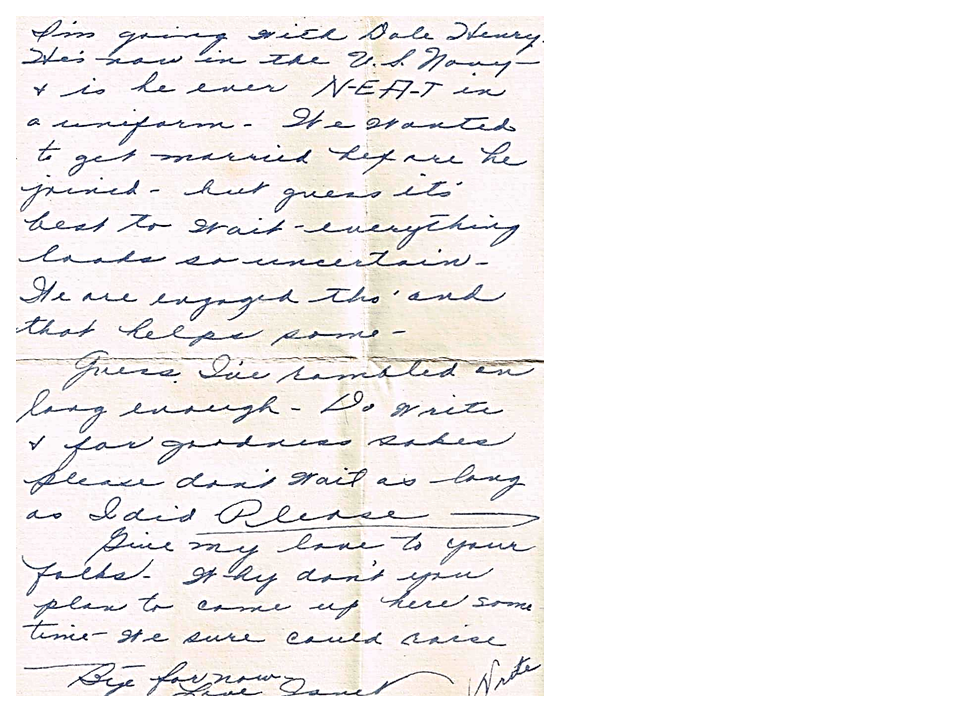 I'm going with Dale Henry.
He's now in the U.S. Navy-
& is he ever N-E-A-T in
a uniform - We wanted
to get married before he
joined - but guess it's
best to wait - everything
looks so uncertain -
We are engaged tho' and
that helps some -
Guess I've rambled on
long enough - Do write
& for goodness sakes
please don't wait as long
as I did Please
Give my love to your
folks. - Why don't you
plan to come up here some
time - We sure could raise
Bye for now -
Love Janet
Write